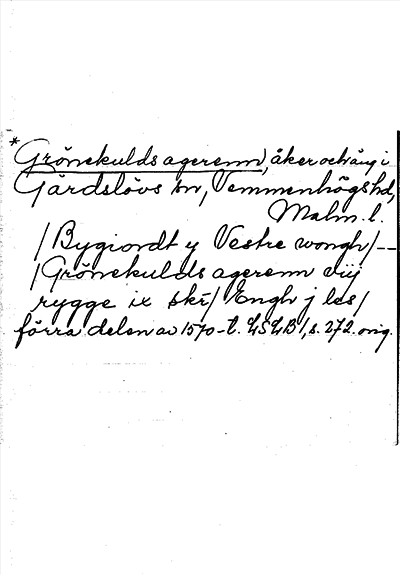 *Grönekulds agerenn, åker och äng i
Gärdslövs sn, Vemmenhögs hd,
Malm. l.
/Bygiordt y Vestre wongh/--
/Grönekulds agerenn viij
rygge ix skr/ Engh j les/
förra delen av 1570-t. LSLB 1, s. 272. orig.